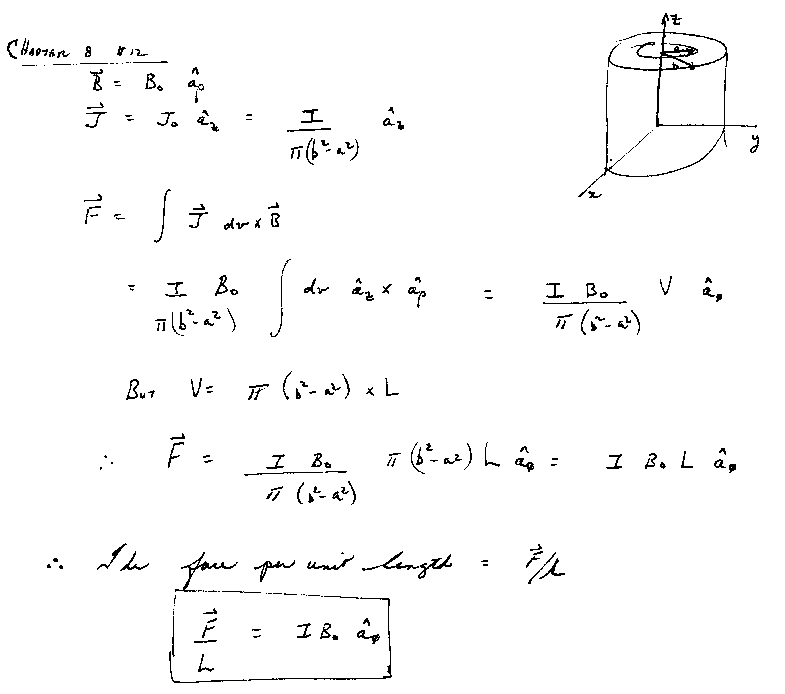 CHAPTER 8 #12
z
a
b
y
x
B⃗ = B₀ âᵨ
J⃗ = J₀ â_z = I / π(b²-a²) â_z
F⃗ = ∫ J⃗ dv × B⃗
= I B₀ / π(b²-a²) ∫ dv â_z × âᵨ = I B₀ / π(b²-a²) V â_ø
BUT V = π (b²-a²) × L
∴ F⃗ = I B₀ / π(b²-a²) π(b²-a²) L â_ø = I B₀ L â_ø
∴ The force per unit length = F⃗/L
F⃗ / L = I B₀ â_ø